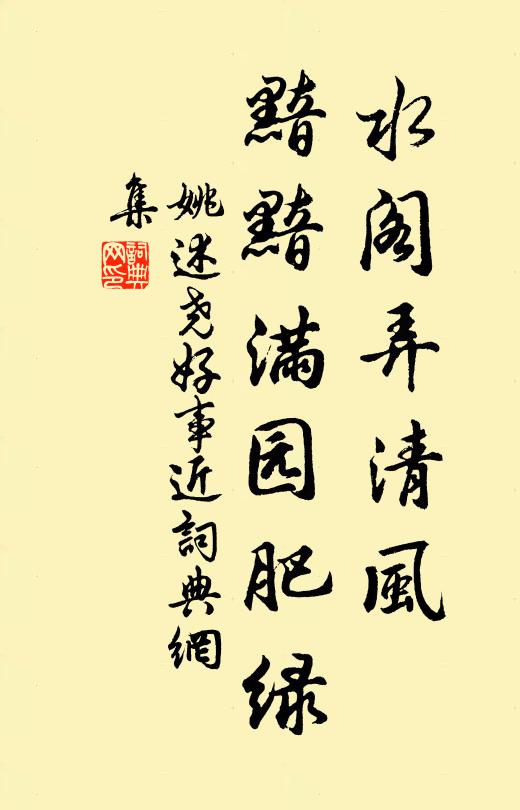 水阁弄清風
黯黯满园肥绿
姚述尧好事近詞典網
集
詞典網印